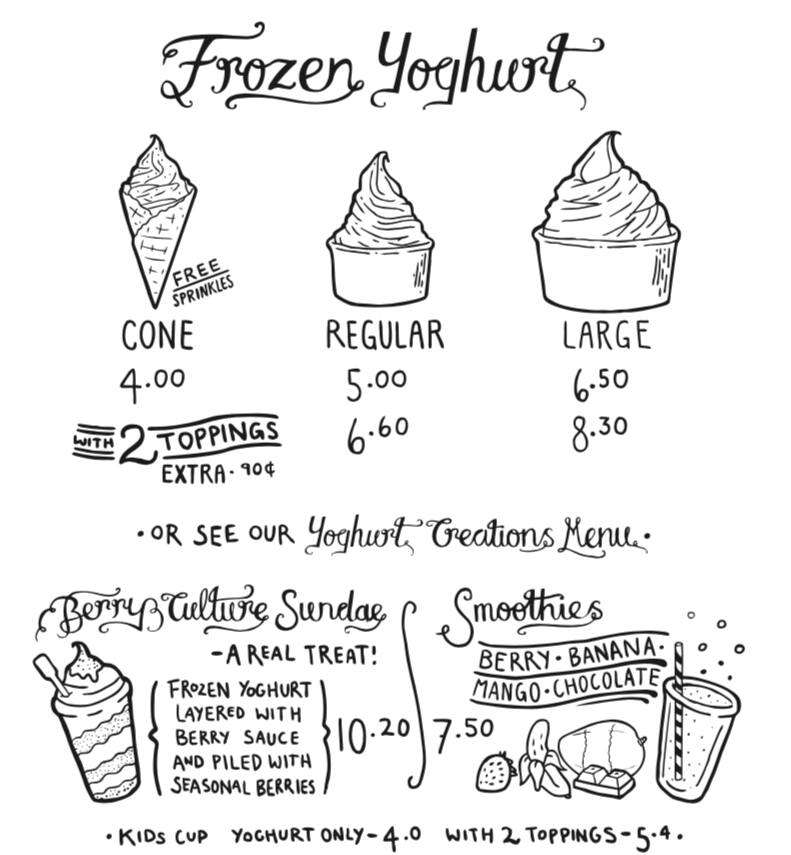 Frozen Yoghurt
FREE
SPRINKLES
CONE REGULAR LARGE
4.00 5.00 6.50
WITH 2 TOPPINGS 6.60 8.30
EXTRA · 90¢
· OR SEE OUR Yoghurt Creations Menu ·
Berry Culture Sundae
- A REAL TREAT!
FROZEN YOGHURT
LAYERED WITH
BERRY SAUCE
AND PILED WITH
SEASONAL BERRIES
10.20
Smoothies
BERRY · BANANA ·
MANGO · CHOCOLATE
7.50
· KIDS CUP YOGHURT ONLY - 4.0 WITH 2 TOPPINGS - 5.4 ·